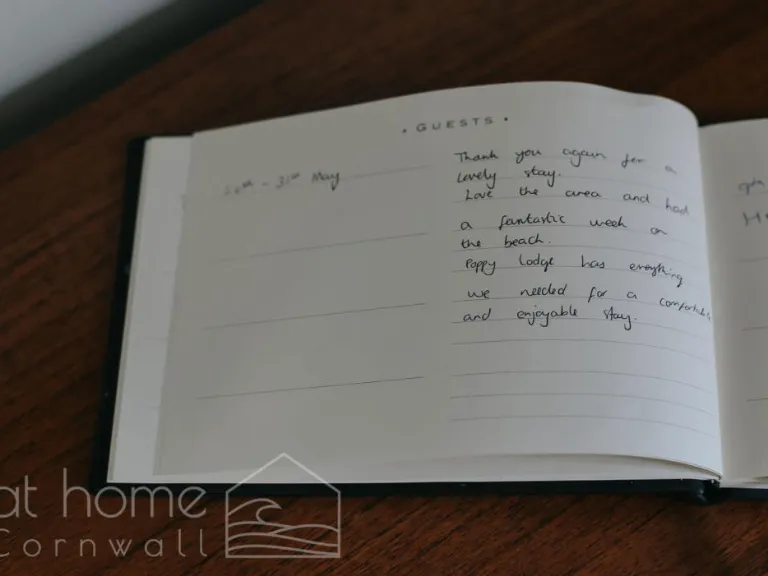 • GUESTS •
- 31st May
Thank you again for a
lovely stay.
Love the area and had
a fantastic week on
the beach.
Poppy Lodge has everything
we needed for a comfortable
and enjoyable stay.
at home
Cornwall